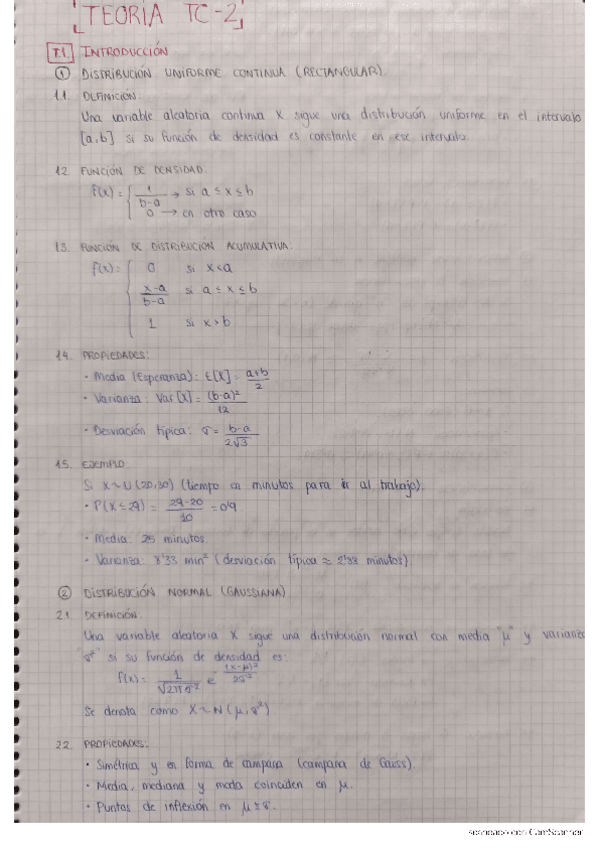 [TEORÍA TC-2]
T.1. INTRODUCCIÓN
① DISTRIBUCIÓN UNIFORME CONTINUA (RECTANGULAR).
1.1. DEFINICIÓN:
Una variable aleatoria continua X sigue una distribución uniforme en el intervalo
[a,b] si su función de densidad es constante en ese intervalo.
1.2. FUNCIÓN DE DENSIDAD:
f(x) = { 1/(b-a) → si a ≤ x ≤ b
0 → en otro caso
1.3. FUNCIÓN DE DISTRIBUCIÓN ACUMULATIVA:
f(x) = { 0 si x < a
(x-a)/(b-a) si a ≤ x ≤ b
1 si x > b
1.4. PROPIEDADES:
• Media (Esperanza): E[X] = (a+b)/2
• Varianza: Var[X] = (b-a)²/12
• Desviación típica: σ = (b-a)/(2√3)
1.5. EJEMPLO:
Si X~U(20,30) (tiempo en minutos para ir al trabajo).
• P(X≤29) = (29-20)/10 = 0'9
• Media: 25 minutos.
• Varianza: 8'33 min² (desviación típica ≈ 2'88 minutos)
② DISTRIBUCIÓN NORMAL (GAUSSIANA)
2.1. DEFINICIÓN:
Una variable aleatoria X sigue una distribución normal con media "μ" y varianza
"σ²" si su función de densidad es:
f(x) = 1/√(2πσ²) e^((x-μ)²/2σ²)
Se denota como X~N(μ,σ²)
2.2. PROPIEDADES:
• Simétrica y en forma de campana (campana de Gauss).
• Media, mediana y moda coinciden en μ.
• Puntos de inflexión en μ±σ.
scanned with CamScanner